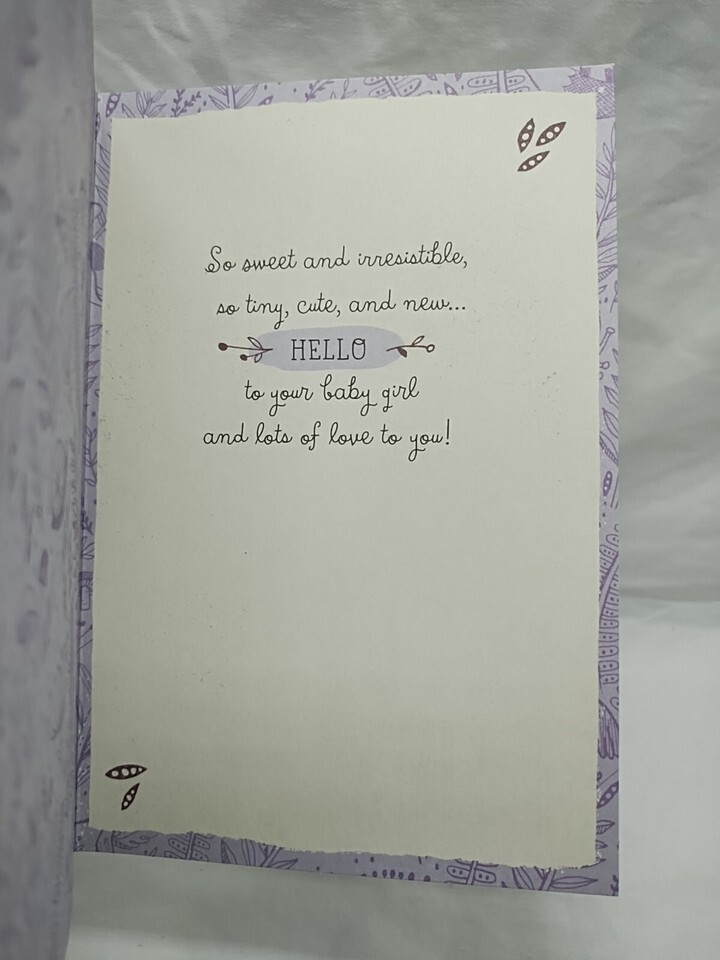 So sweet and irresistible,
so tiny, cute, and new...
HELLO
to your baby girl
and lots of love to you!